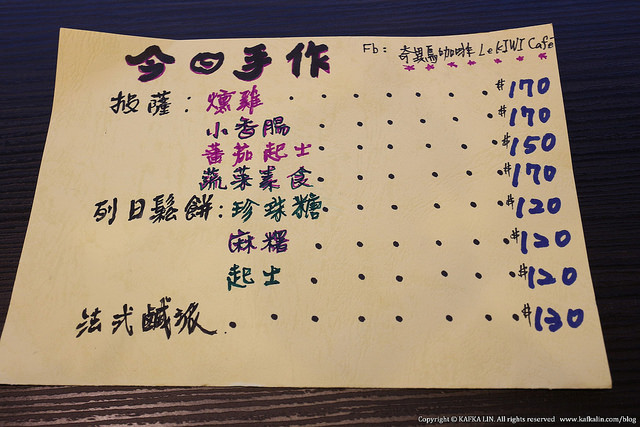 今日手作
Fb: 奇異鳥咖啡 Le KIWI Café
披薩: 燻雞 $170
小香腸 $170
蕃茄起士 $150
蔬菜素食 $170
列日鬆餅: 珍珠糖 $120
麻糬 $120
起士 $120
法式鹹派 $130
Copyright © KAFKA LIN. All rights reserved www.kafkalin.com/blog